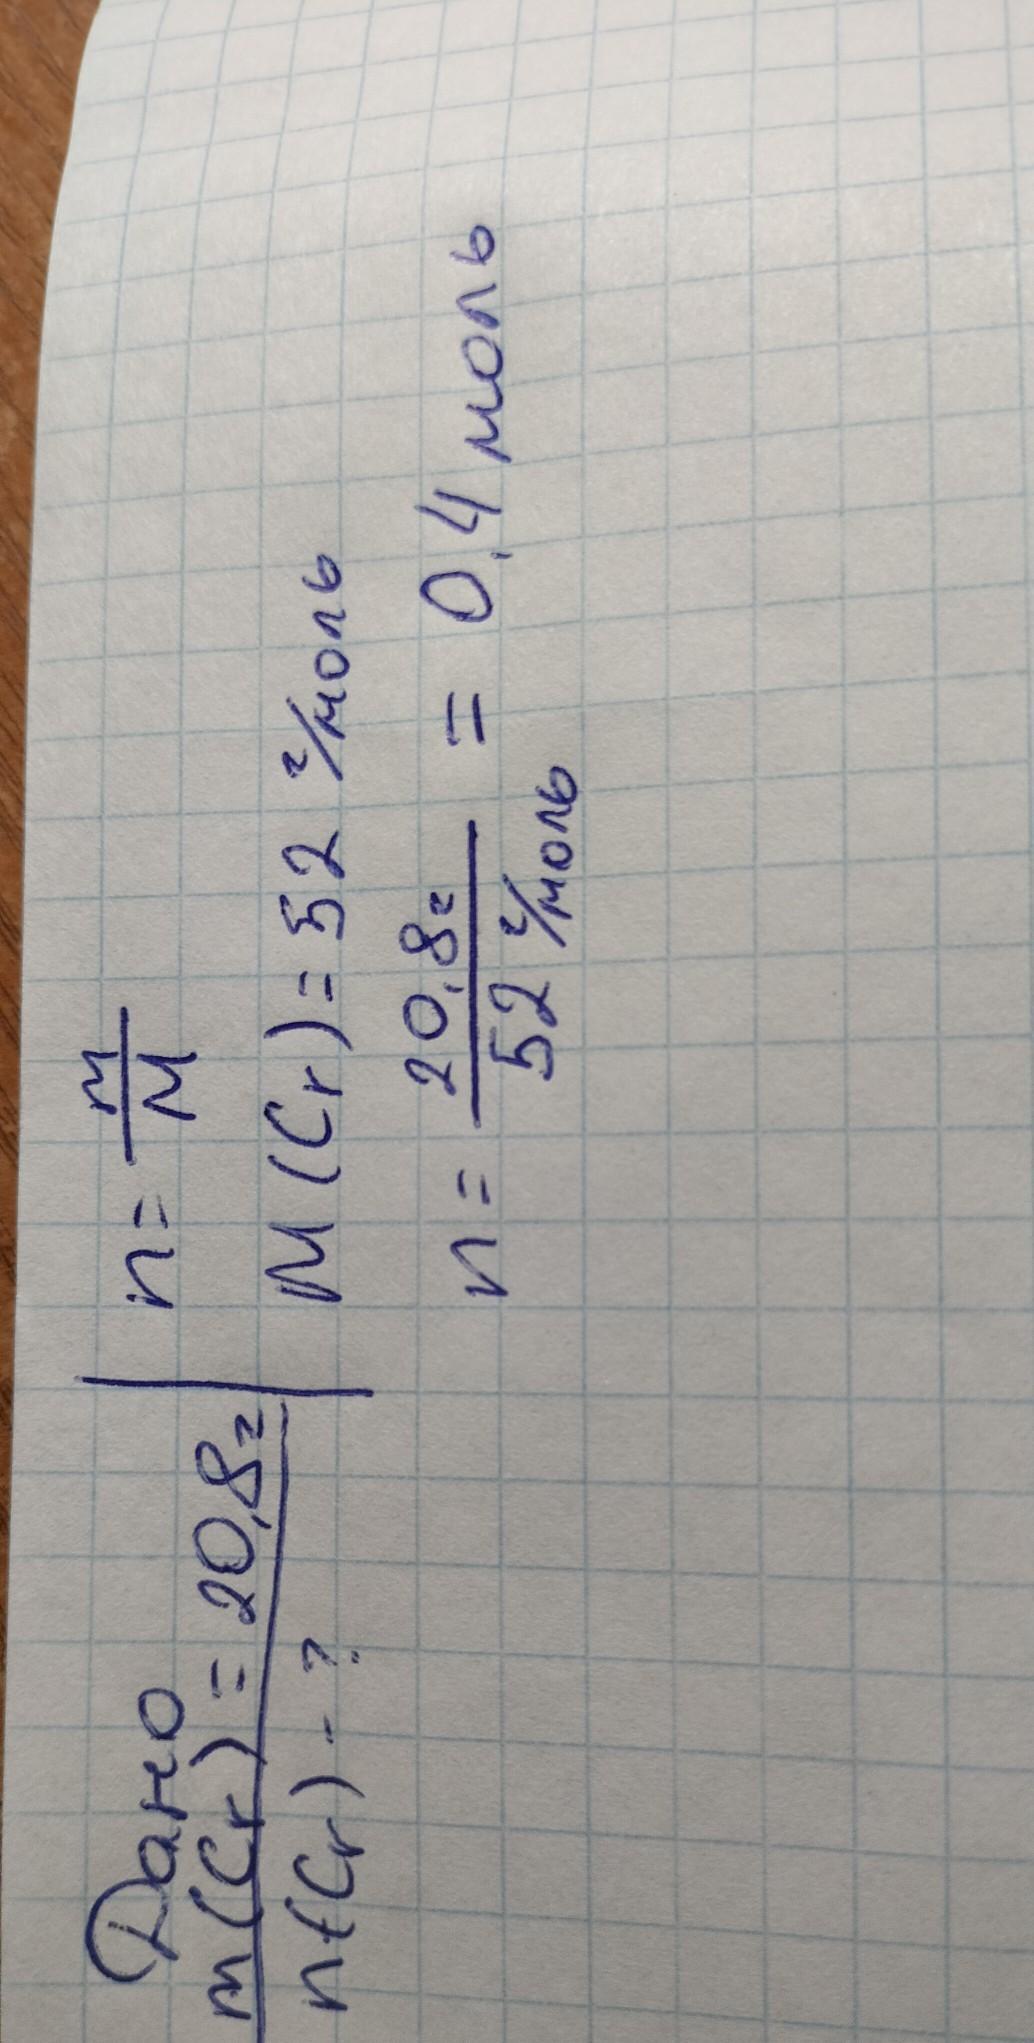 Дано
m(Cr) = 20,8г
n(Cr) - ?
n = m/M
M(Cr) = 52 г/моль
n = 20,8г / 52 г/моль = 0,4 моль